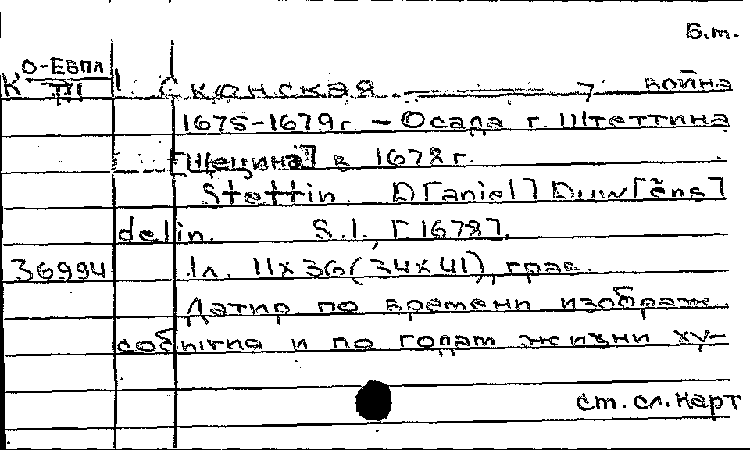 Б.т.
К О-Евпл
III
Сконская война
1675-1679г - Осада г. Штеттина
[Щецина] в 1678 г.
Stettin. D[aniel] Duw[ens]
delin. S.l., [1678].
36994 1л. 11х36(34х41), грав.
Датир по времени изображ.
события и по годам жизни ху-
см. сл. карт